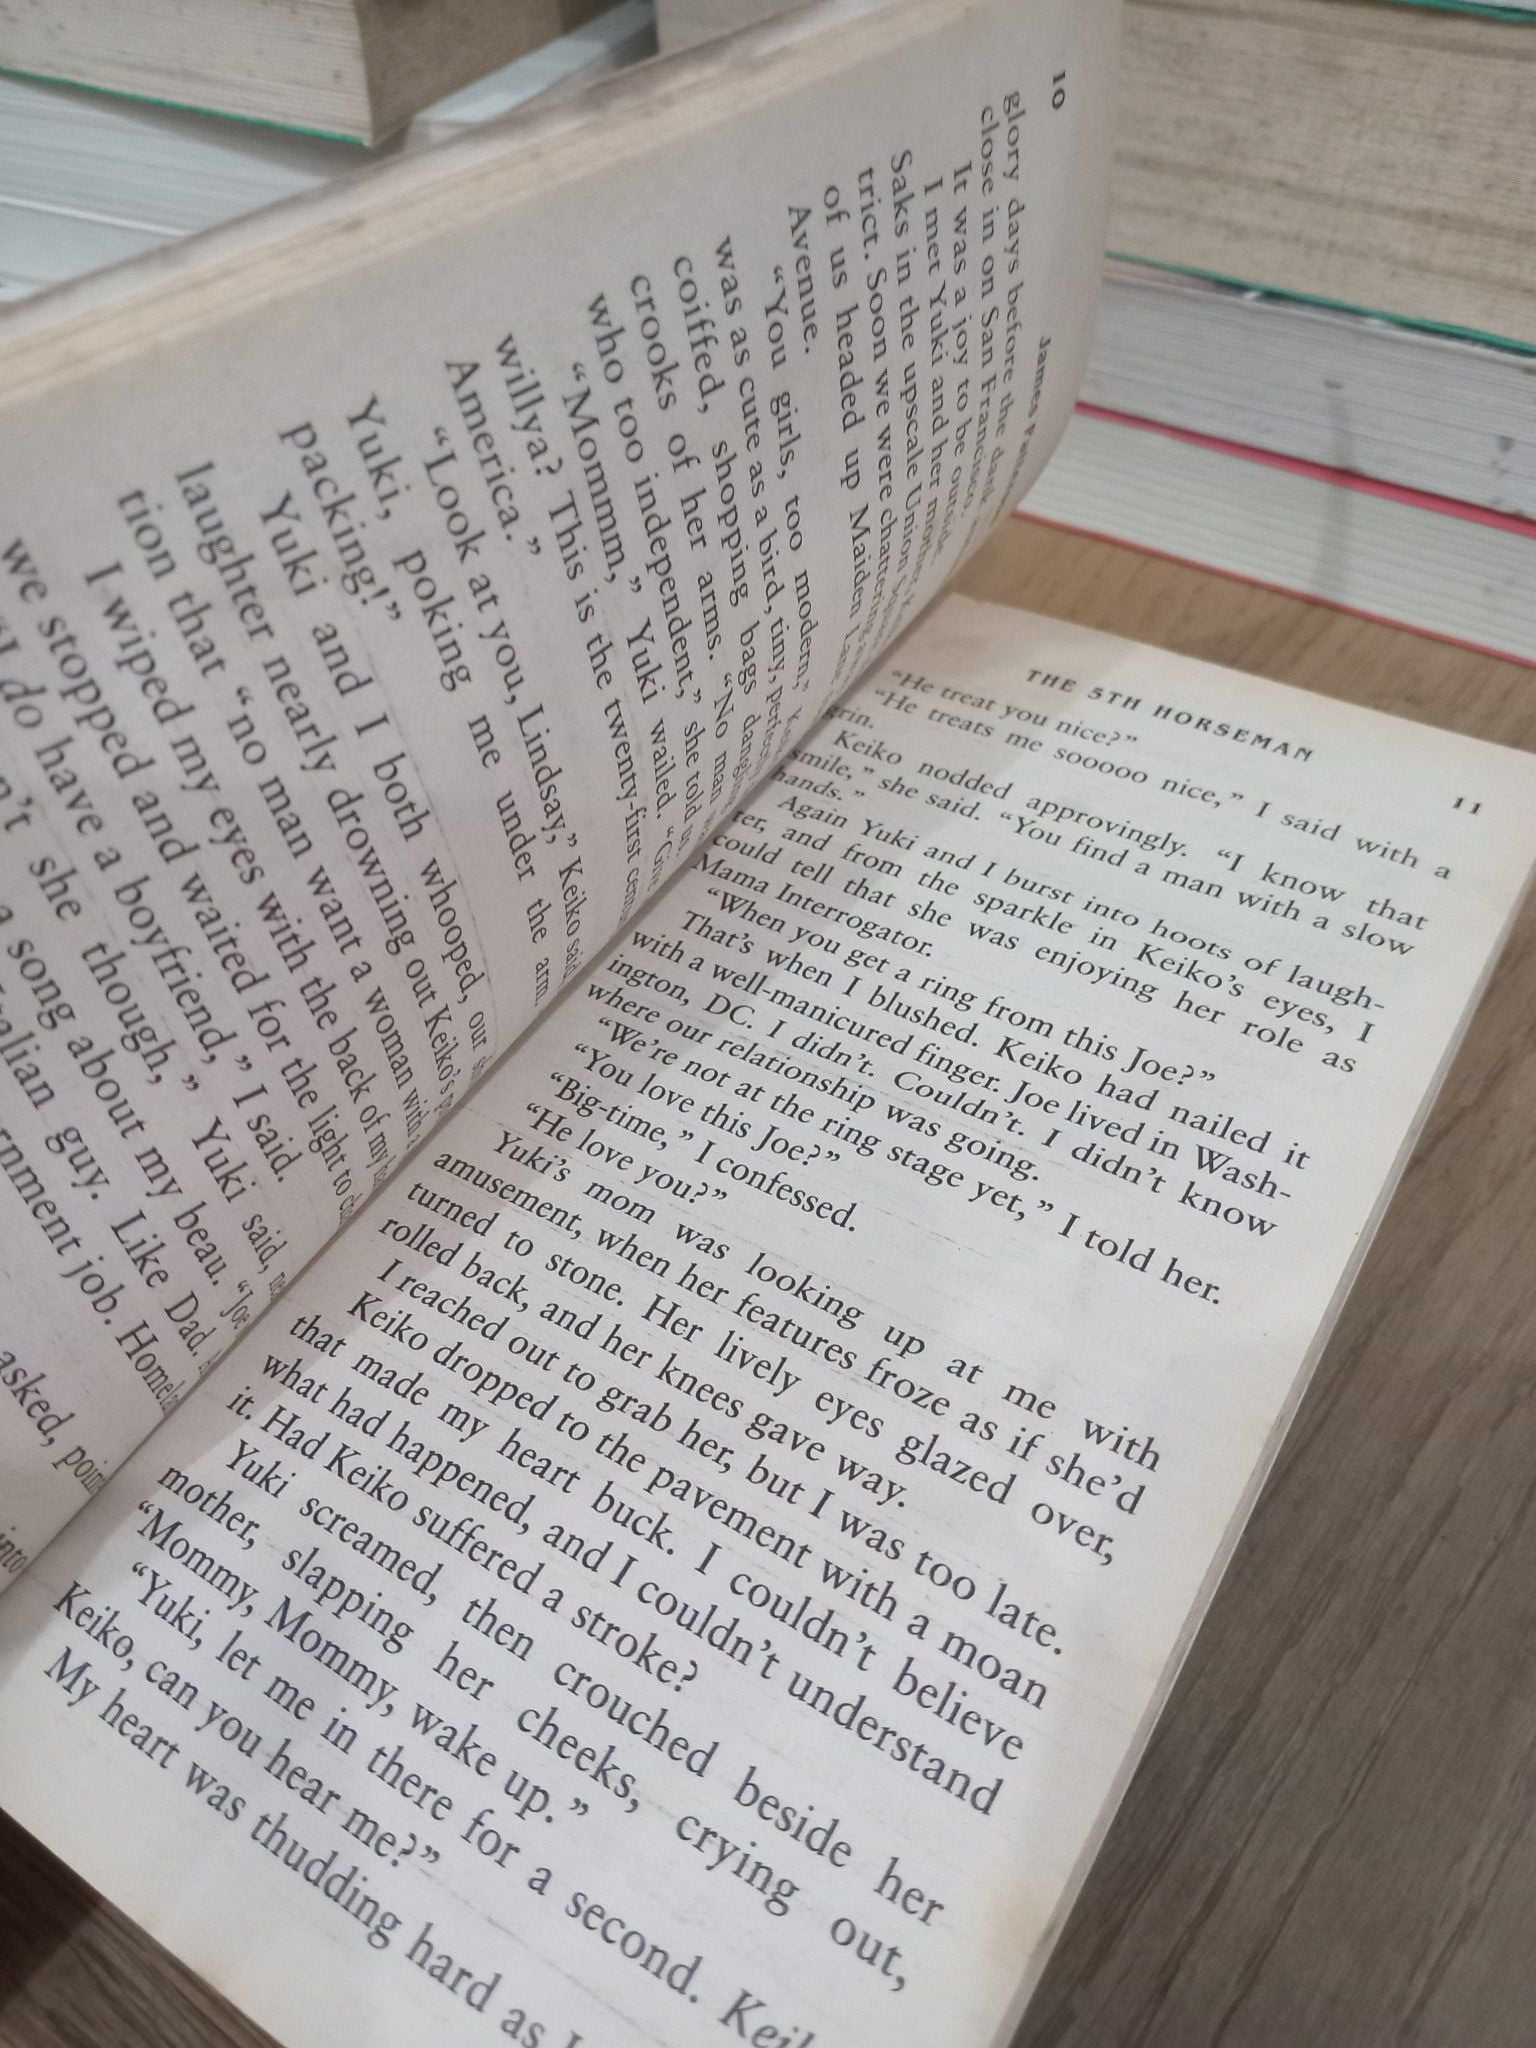 10
James
glory days before the dark
close in on San Francisco.
It was a joy to be outside.
I met Yuki and her mother,
Saks in the upscale Union
trict. Soon we were chattering
of us headed up Maiden Lane
Avenue.
“You girls, too modern,”
was as cute as a bird, tiny,
coiffed, shopping bags
crooks of her arms. “No man
who too independent,” she told us.
“Mommm,” Yuki wailed. “Give
willya? This is the twenty-first
America.”
“Look at you, Lindsay,” Keiko said,
Yuki, poking me under the arm.
packing!”
Yuki and I both whooped, our
laughter nearly drowning out Keiko’s
tion that “no man want a woman with
I wiped my eyes with the back of my
we stopped and waited for the light to
“I do have a boyfriend,” I said.
she though,” Yuki said,
a song about my beau. “Joe
guy. Like Dad.
job.
asked,
into
THE 5TH HORSEMAN
11
“He treat you nice?”
“He treats me sooooo nice,” I said with a
grin.
Keiko nodded approvingly. “I know that
smile,” she said. “You find a man with a slow
hands.”
Again Yuki and I burst into hoots of laugh-
ter, and from the sparkle in Keiko’s eyes, I
could tell that she was enjoying her role as
Mama Interrogator.
“When you get a ring from this Joe?”
That’s when I blushed. Keiko had nailed it
with a well-manicured finger. Joe lived in Wash-
ington, DC. I didn’t. Couldn’t. I didn’t know
where our relationship was going.
“We’re not at the ring stage yet,” I told her.
“You love this Joe?”
“Big-time,” I confessed.
“He love you?”
Yuki’s mom was looking up at me with
amusement, when her features froze as if she’d
turned to stone. Her lively eyes glazed over,
rolled back, and her knees gave way.
I reached out to grab her, but I was too late.
Keiko dropped to the pavement with a moan
that made my heart buck. I couldn’t believe
what had happened, and I couldn’t understand
it. Had Keiko suffered a stroke?
Yuki screamed, then crouched beside her
mother, slapping her cheeks, crying out,
“Mommy, Mommy, wake up.”
“Yuki, let me in there for a second.
Keiko, can you hear me?”
My heart was thudding hard as I